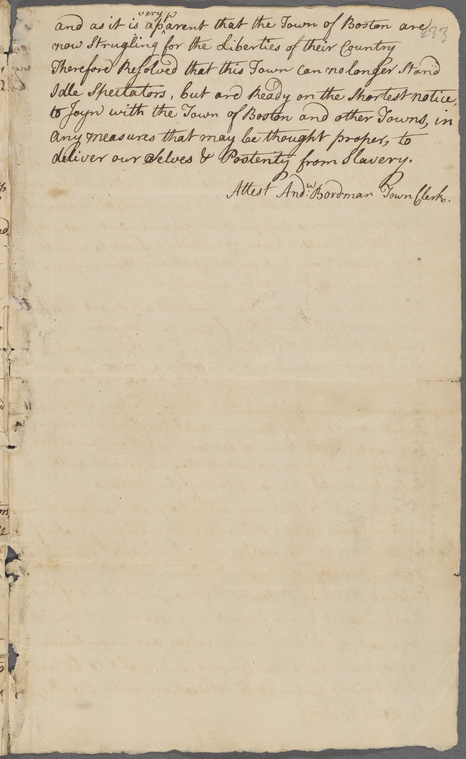 233
and as it is very apparent that the Town of Boston are
now Strugling for the Liberties of their Country
Therefore Resolved that this Town can no longer Stand
Idle Spectators, but are Ready on the Shortest notice,
to Joyn with the Town of Boston and other Towns, in
any measures that may be thought proper, to
deliver our Selves & Posterity from Slavery.
Attest Andw. Bordman Town Clerk.